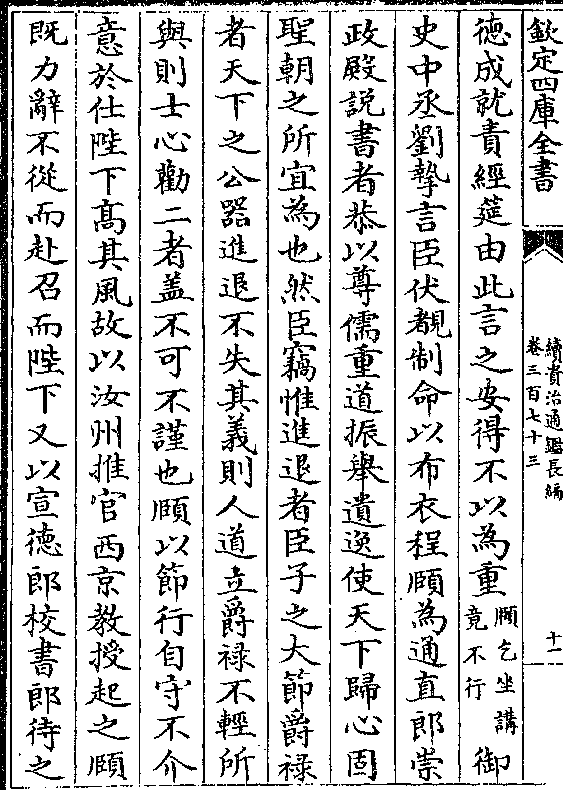 欽定四庫全書
續資治通鑑長編
卷三百七十三
十一
德成就責經筵由此言之安得不以為重頤乞坐講竟不行御
史中丞劉摯言臣伏覩制命以布衣程頤為通直郎崇
政殿説書者恭以尊儒重道振舉遺逸使天下歸心固
聖朝之所宜為也然臣竊惟進退者臣子之大節爵禄
者天下之公器進退不失其義則人道立爵禄不輕所
與則士心勸二者盖不可不謹也頤以節行自守不介
意於仕陛下髙其風故以汝州推官西京教授起之頤
既力辭不從而赴召而陛下又以宣徳郎校書郎待之